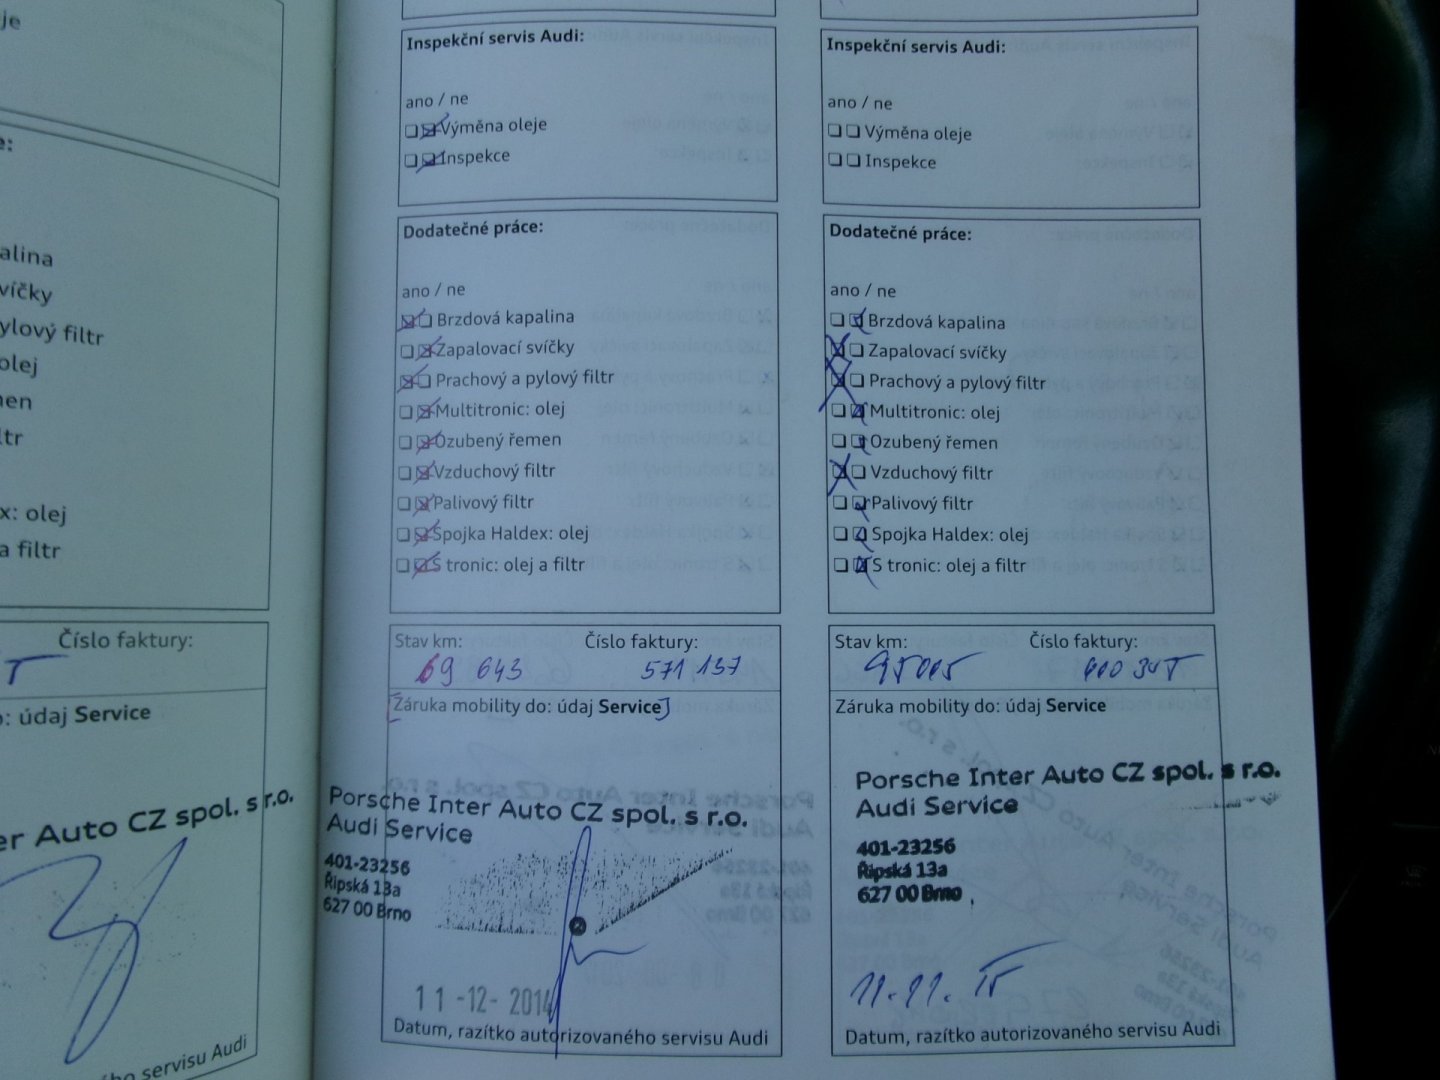 je
e:
alina
víčky
ylový filtr
olej
men
ltr
x: olej
a filtr
Číslo faktury:
o: údaj Service
er Auto CZ spol. s r.o.
ho servisu Audi
Inspekční servis Audi:
ano / ne
Výměna oleje
Inspekce
Dodatečné práce:
ano / ne
Brzdová kapalina
Zapalovací svíčky
Prachový a pylový filtr
Multitronic: olej
Ozubený řemen
Vzduchový filtr
Palivový filtr
Spojka Haldex: olej
S tronic: olej a filtr
Stav km: Číslo faktury:
69 643 571 137
Záruka mobility do: údaj Service
Porsche Inter Auto CZ spol. s r.o.
Audi Service
401-23256
Řipská 13a
627 00 Brno
11 -12- 2014
Datum, razítko autorizovaného servisu Audi
Inspekční servis Audi:
ano / ne
Výměna oleje
Inspekce
Dodatečné práce:
ano / ne
Brzdová kapalina
Zapalovací svíčky
Prachový a pylový filtr
Multitronic: olej
Ozubený řemen
Vzduchový filtr
Palivový filtr
Spojka Haldex: olej
S tronic: olej a filtr
Stav km: Číslo faktury:
Záruka mobility do: údaj Service
Porsche Inter Auto CZ spol. s r.o.
Audi Service
401-23256
Řipská 13a
627 00 Brno
11.11. 15
Datum, razítko autorizovaného servisu Audi